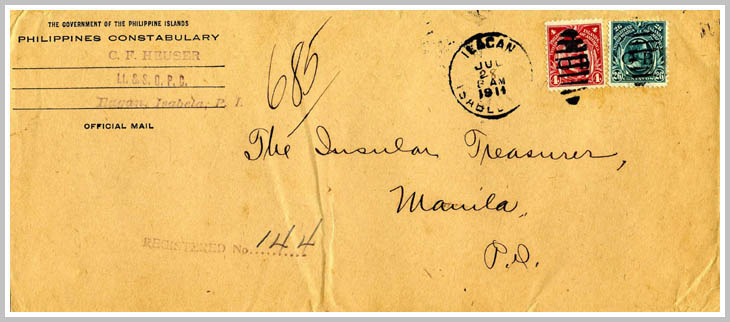 THE GOVERNMENT OF THE PHILIPPINE ISLANDS
PHILIPPINES CONSTABULARY
C. F. HEUSER
Lt. S. S. O. P. C.
Ilagan, Isabela, P. I.
OFFICIAL MAIL
685
ILAGAN
JUL
28
8 AM
1911
ISABELA
The Insular Treasurer,
Manila,
P.I.
REGISTERED No. 144